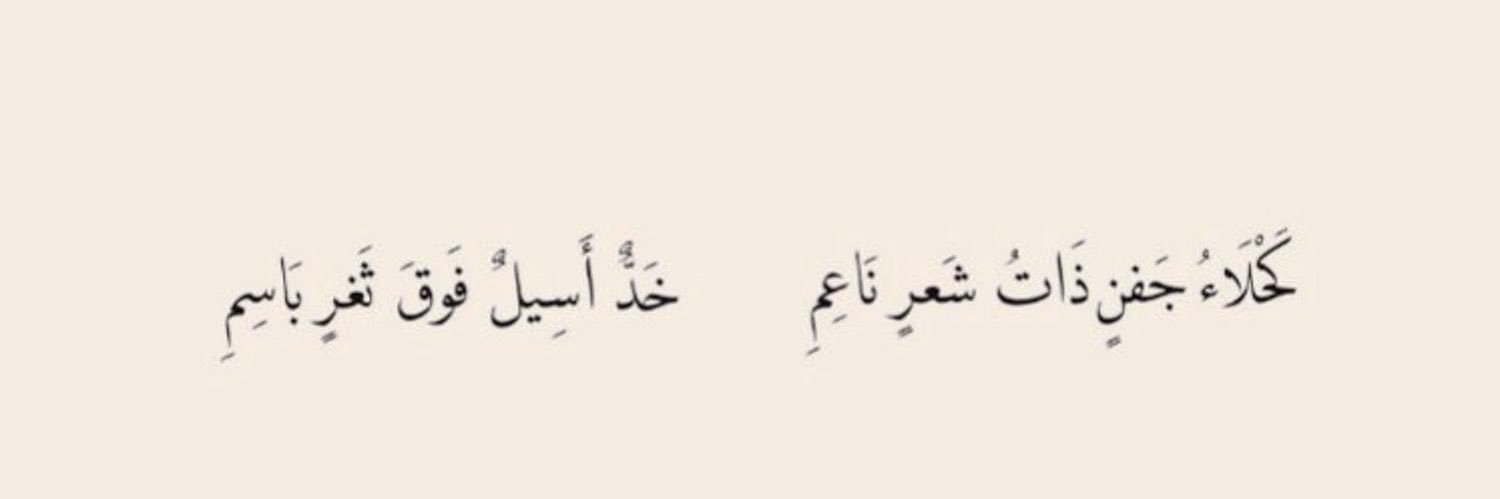 كَحْلَاءُ جَفنٍ ذَاتُ شَعرٍ نَاعِمِ خَدٌّ أَسِيلٌ فَوقَ ثَغرٍ بَاسِمِ